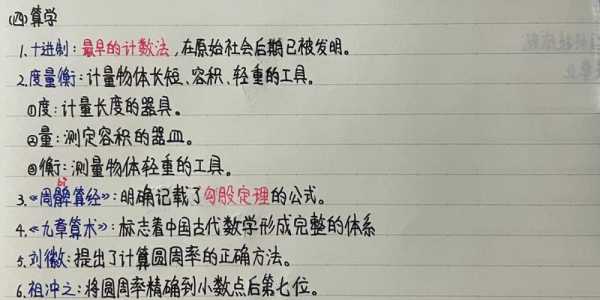 (四)算学
1.十进制:最早的计数法,在原始社会后期已被发明。
2.度量衡:计量物体长短、容积、轻重的工具。
①度:计量长度的器具。
②量:测定容积的器皿。
③衡:测量物体轻重的工具。
bì
3.《周髀算经》:明确记载了勾股定理的公式。
4.《九章算术》:标志着中国古代数学形成完整的体系
5.刘徽:提出了计算圆周率的正确方法。
6.祖冲之:将圆周率精确到小数点后第七位。